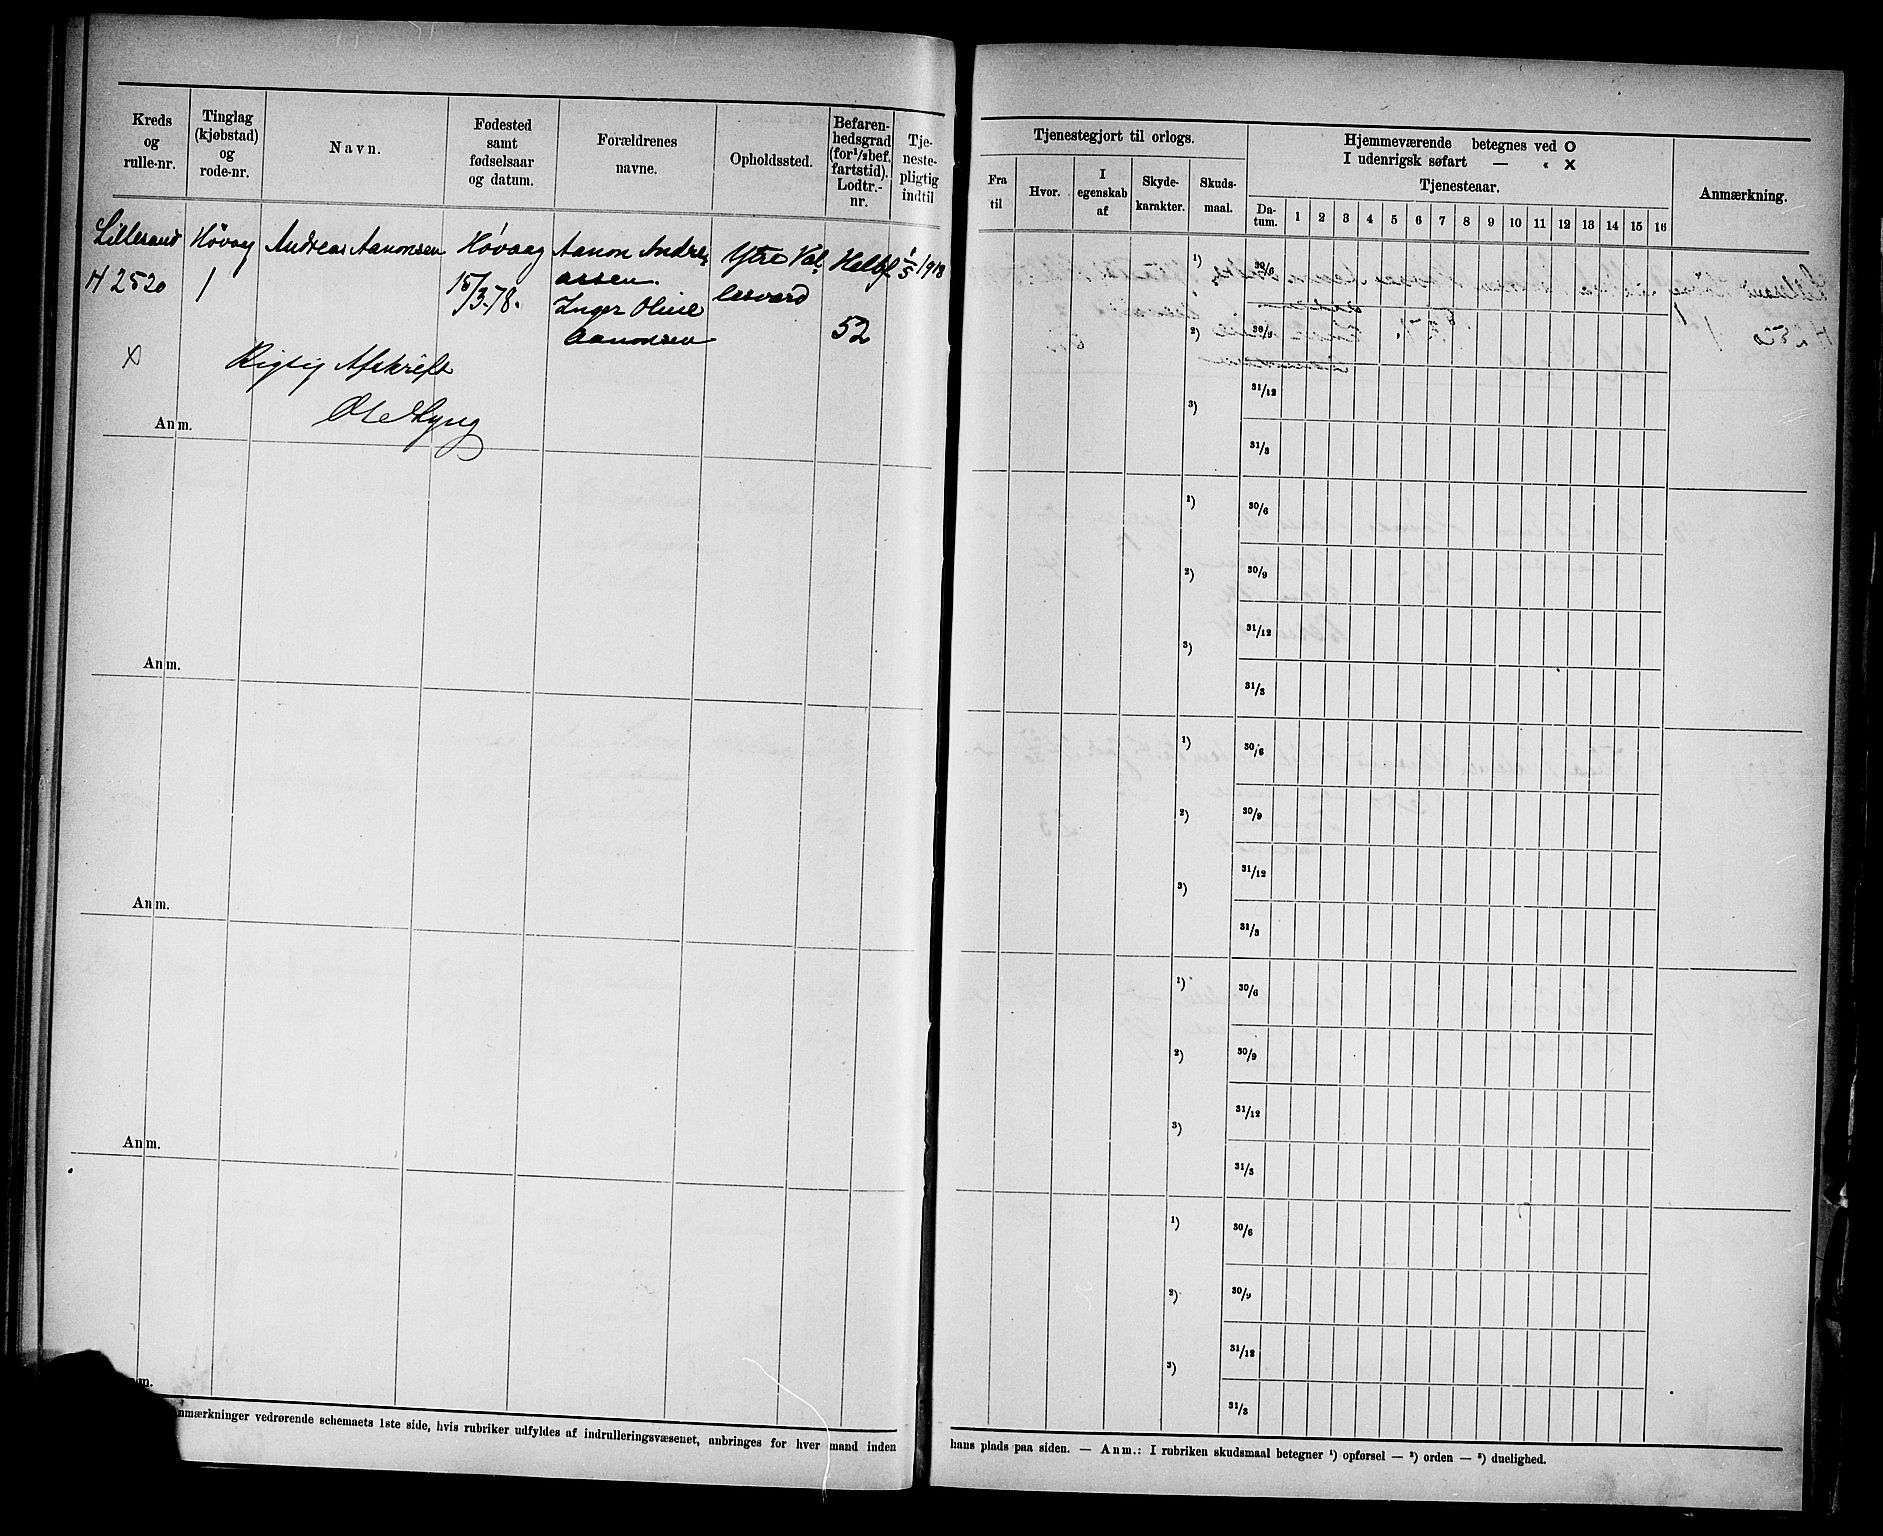 Kreds
og
rulle-nr.
Tinglag
(kjøbstad)
og
rode-nr.
Navn.
Fødested
samt
fødselsaar
og datum.
Forældrenes
navne.
Opholdssted.
Befaren-
hedsgrad
(for ½ bef.
fartstid).
Lodtr.-
nr.
Tje-
neste-
pligtig
indtil
Lillesand
H 2520
Høvaag
1
Andreas Aanonsen
Høvaag
15/3-78.
Aanon Andre-
assen.
Inger Oline
Aanonsen
Ytre Val-
lesverd
Helbf.
52
1/5 1918
X
Rigtig Afskrift
Ole Lyng
Anm.
Anm.
Anm.
Anm.
nm.
nmærkninger vedrørende schemaets 1ste side, hvis rubriker udfyldes af indrulleringsvæsenet, anbringes for hver mand inden
Tjenestegjort til orlogs.
Hjemmeværende betegnes ved O
I udenrigsk søfart — « X
Tjenesteaar.
Anmærkning.
Fra
til
Hvor.
I
egenskab
af
Skyde-
karakter.
Skuds-
maal.
Da-
tum.
1 2 3 4 5 6 7 8 9 10 11 12 13 14 15 16
1) 30/6
2) 30/9
31/12
3)
31/3
1) 30/6
2) 30/9
31/12
3)
31/3
1) 30/6
2) 30/9
31/12
3)
31/3
1) 30/6
2) 30/9
31/12
3)
31/3
1) 30/6
2) 30/9
31/12
3)
31/3
hans plads paa siden. — Anm.: I rubriken skudsmaal betegner ¹) opførsel — ²) orden — ³) duelighed.